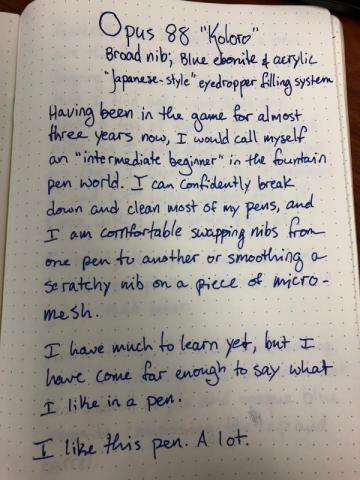 Opus 88 "Koloro"
Broad nib; Blue ebonite & acrylic
"Japanese-style" eyedropper filling system
Having been in the game for almost
three years now, I would call myself
an "intermediate beginner" in the fountain
pen world. I can confidently break
down and clean most of my pens, and
I am comfortable swapping nibs from
one pen to another or smoothing a
scratchy nib on a piece of micro-
mesh.
I have much to learn yet, but I
have come far enough to say what
I like in a pen.
I like this pen. A lot.